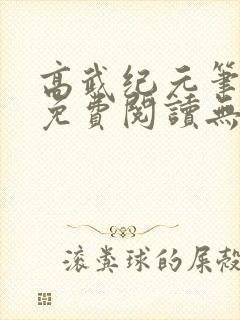 高武纪元筆
免費閱讀無
滚粪球的屎殼